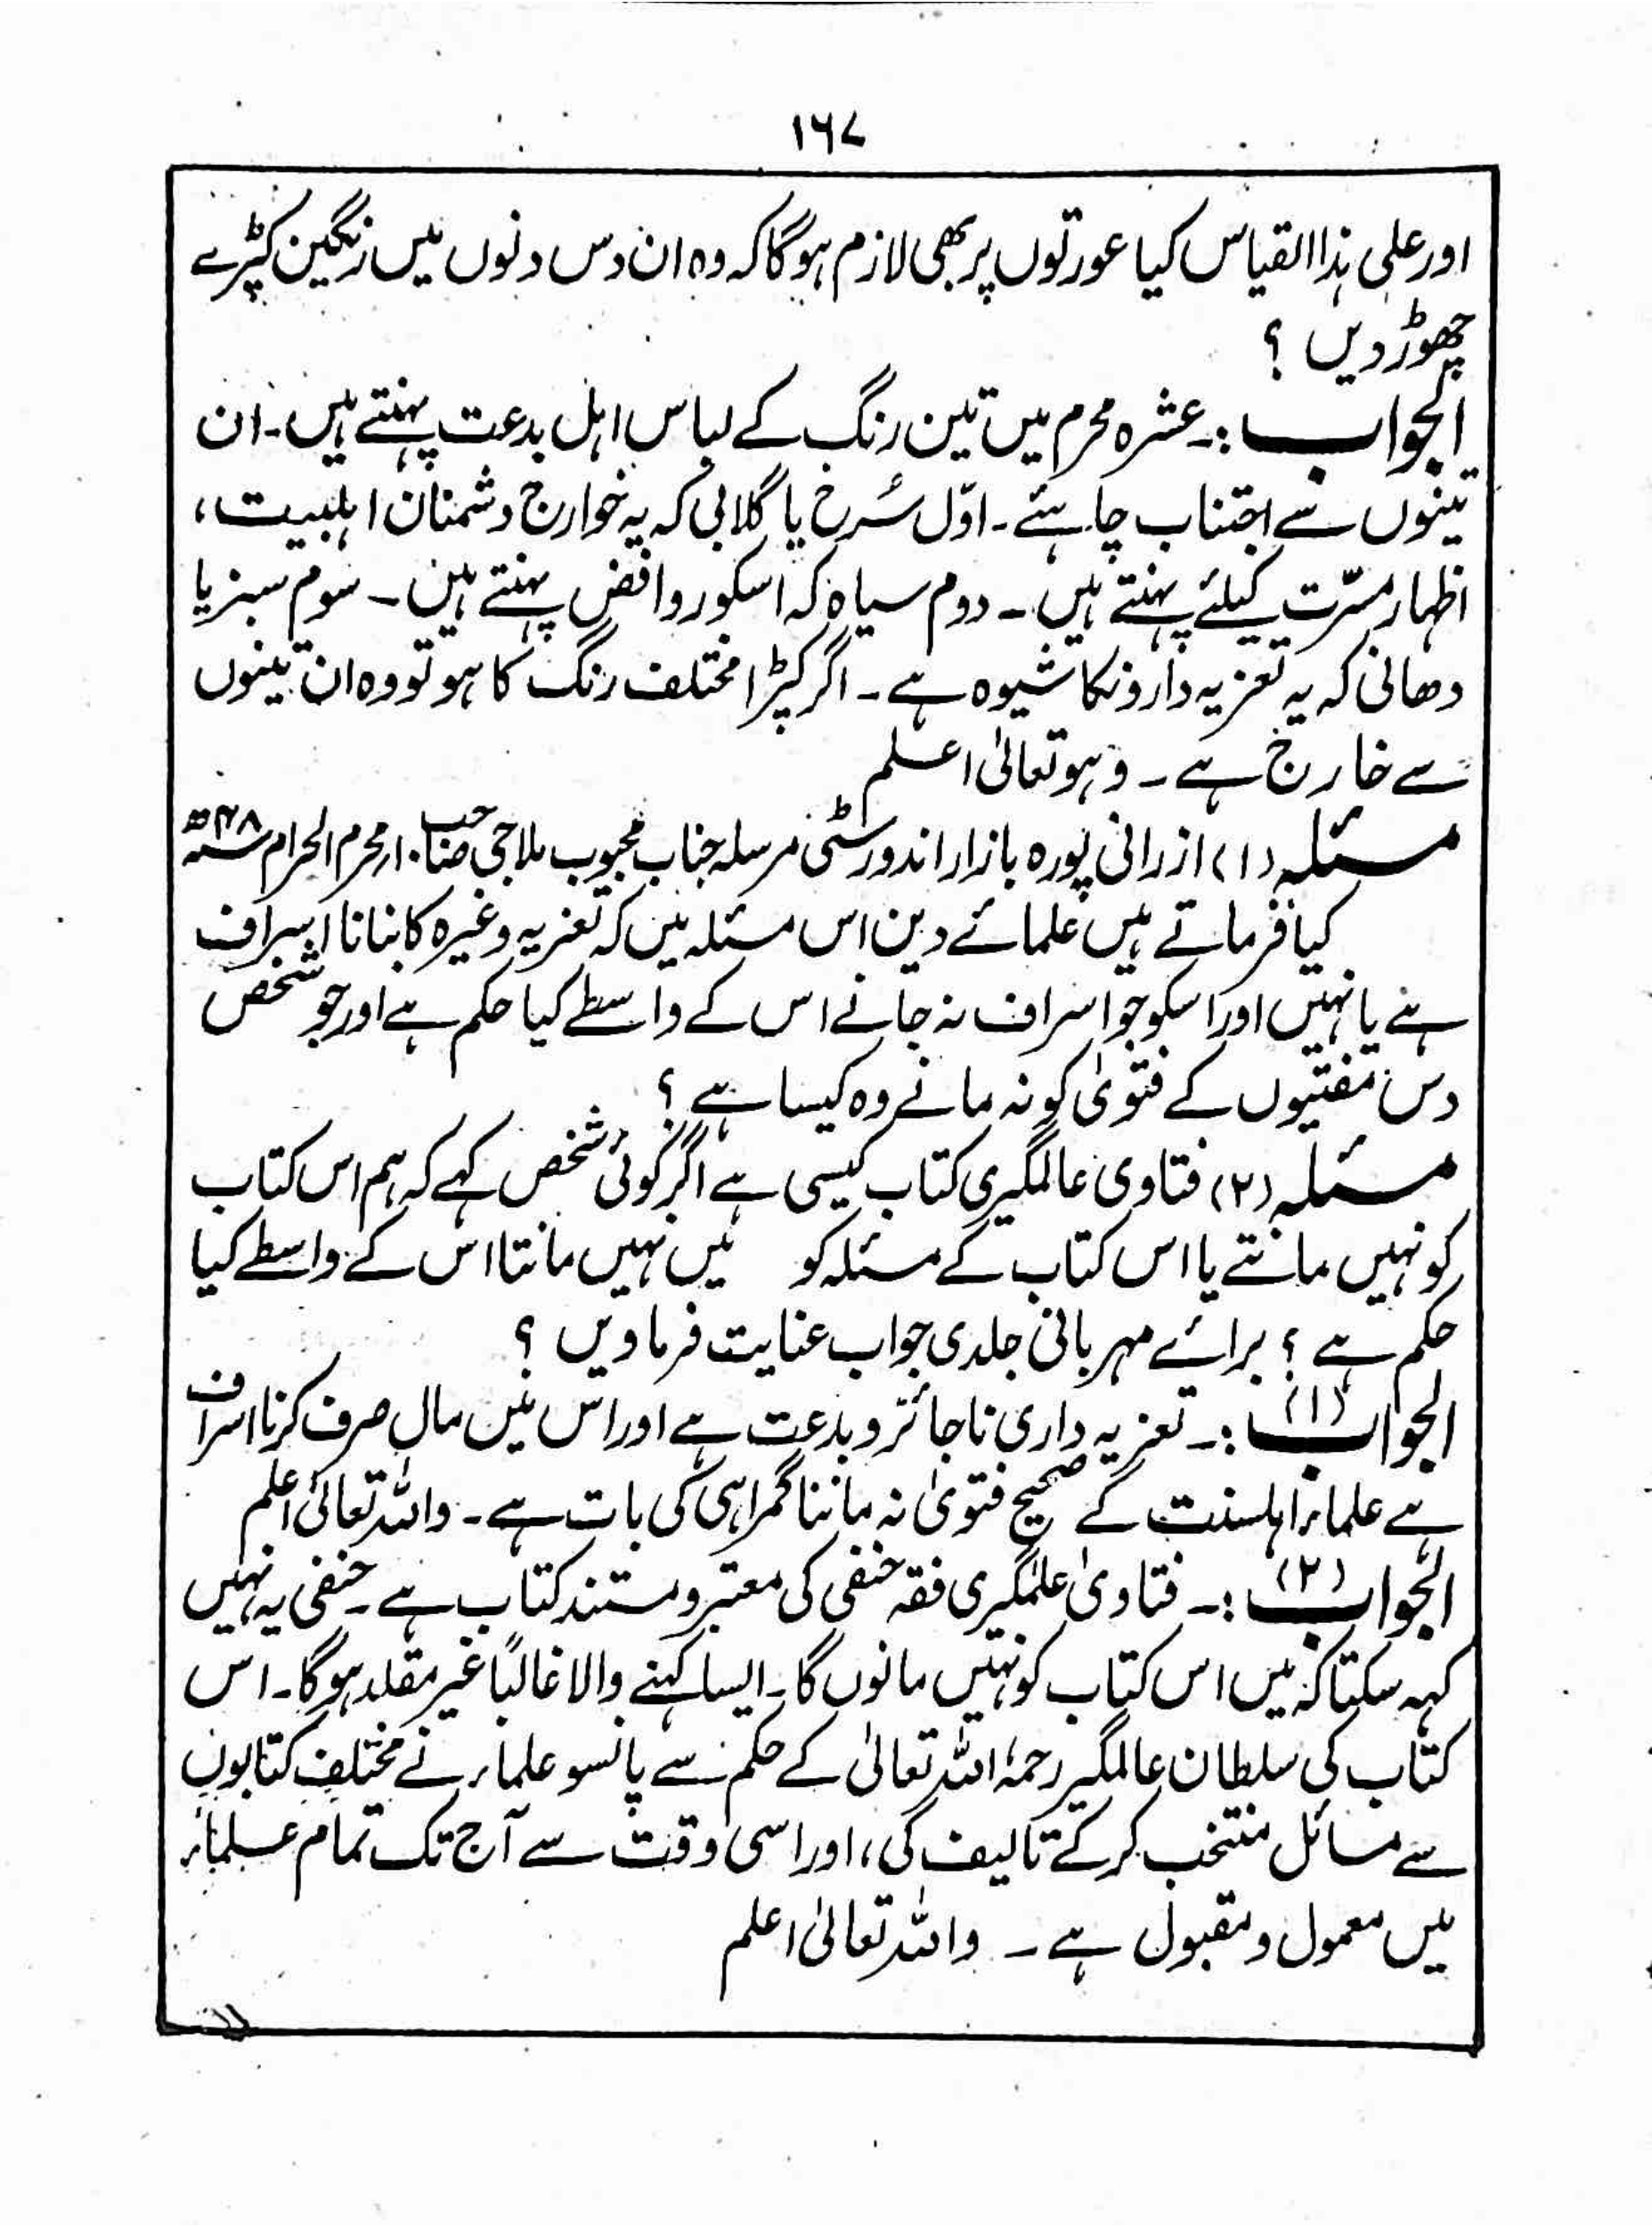 ۱۶۷
اور علی ہذا القیاس کیا عورتوں پر بھی لازم ہوگا کہ وہ ان دس دنوں میں رنگین کپڑے
چھوڑ دیں ؟
الجواب :۔ عشرہ محرم میں تین رنگ کے لباس اہل بدعت پہنتے ہیں ۔ ان
تینوں سے اجتناب چاہئے ۔ اوّل سُرخ یا گلابی کہ یہ خوارج دشمنان اہلبیت ،
اظہار مسرّت کیلئے پہنتے ہیں ۔ دوم سیاہ کہ اسکو روافض پہنتے ہیں ۔ سوم سبز یا
دھانی کہ یہ تعزیہ دارونکا شیوہ ہے ۔ اگر کپڑا مختلف رنگ کا ہو تو وہ ان تینوں
سے خارج ہے ۔ وہو تعالیٰ اعلم
مسئلہ (۱) از رانی پورہ بازار اندور سٹی مرسلہ جناب محبوب ملاجی صاحب ۱۰ محرم الحرام ۴۸ھ
کیا فرماتے ہیں علمائے دین اس مسئلہ میں کہ تعزیہ وغیرہ کا بنانا اسراف
ہے یا نہیں اور اسکو جو اسراف نہ جانے اس کے واسطے کیا حکم ہے اور جو شخص
دس مفتیوں کے فتویٰ کو نہ مانے وہ کیسا ہے ؟
مسئلہ (۲) فتاوی عالمگیری کتاب کیسی ہے اگر کوئی شخص کہے کہ ہم اس کتاب
کو نہیں مانتے یا اس کتاب کے مسئلہ کو میں نہیں مانتا اس کے واسطے کیا
حکم ہے ؟ برائے مہربانی جلدی جواب عنایت فرماویں ؟
الجواب (۱) :۔ تعزیہ داری ناجائز و بدعت ہے اور اس میں مال صرف کرنا اسراف
ہے علماء اہلسنت کے صحیح فتویٰ نہ ماننا گمراہی کی بات ہے ۔ واللہ تعالیٰ اعلم
الجواب (۲) :۔ فتاویٰ علمگیری فقہ حنفی کی معتبر و مستند کتاب ہے ۔ حنفی یہ نہیں
کہہ سکتا کہ میں اس کتاب کو نہیں مانوں گا ۔ ایسا کہنے والا غالبًا غیر مقلد ہوگا ۔ اس
کتاب کی سلطان عالمگیر رحمۃ اللہ تعالیٰ کے حکم سے پانسو علماء نے مختلف کتابوں
سے مسائل منتخب کرکے تالیف کی ، اور اسی وقت سے آج تک تمام علماء
میں معمول و مقبول ہے ۔ واللہ تعالیٰ اعلم